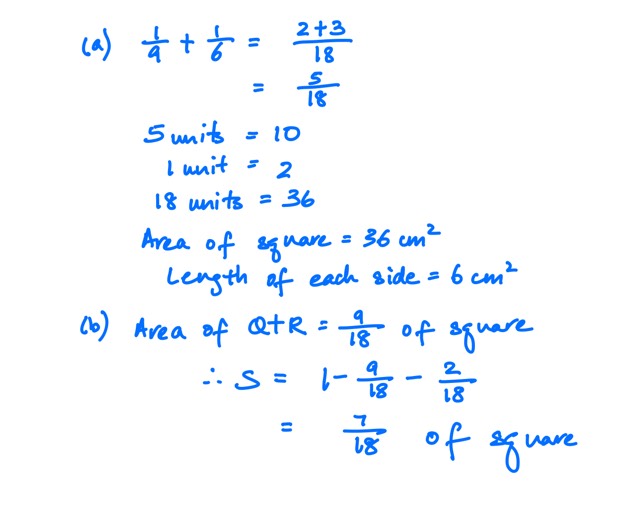 (a) 1/9 + 1/6 = 2+3/18
= 5/18
5 units = 10
1 unit = 2
18 units = 36
Area of square = 36 cm²
Length of each side = 6 cm²
(b) Area of Q+R = 9/18 of square
∴ S = 1 - 9/18 - 2/18
= 7/18 of square